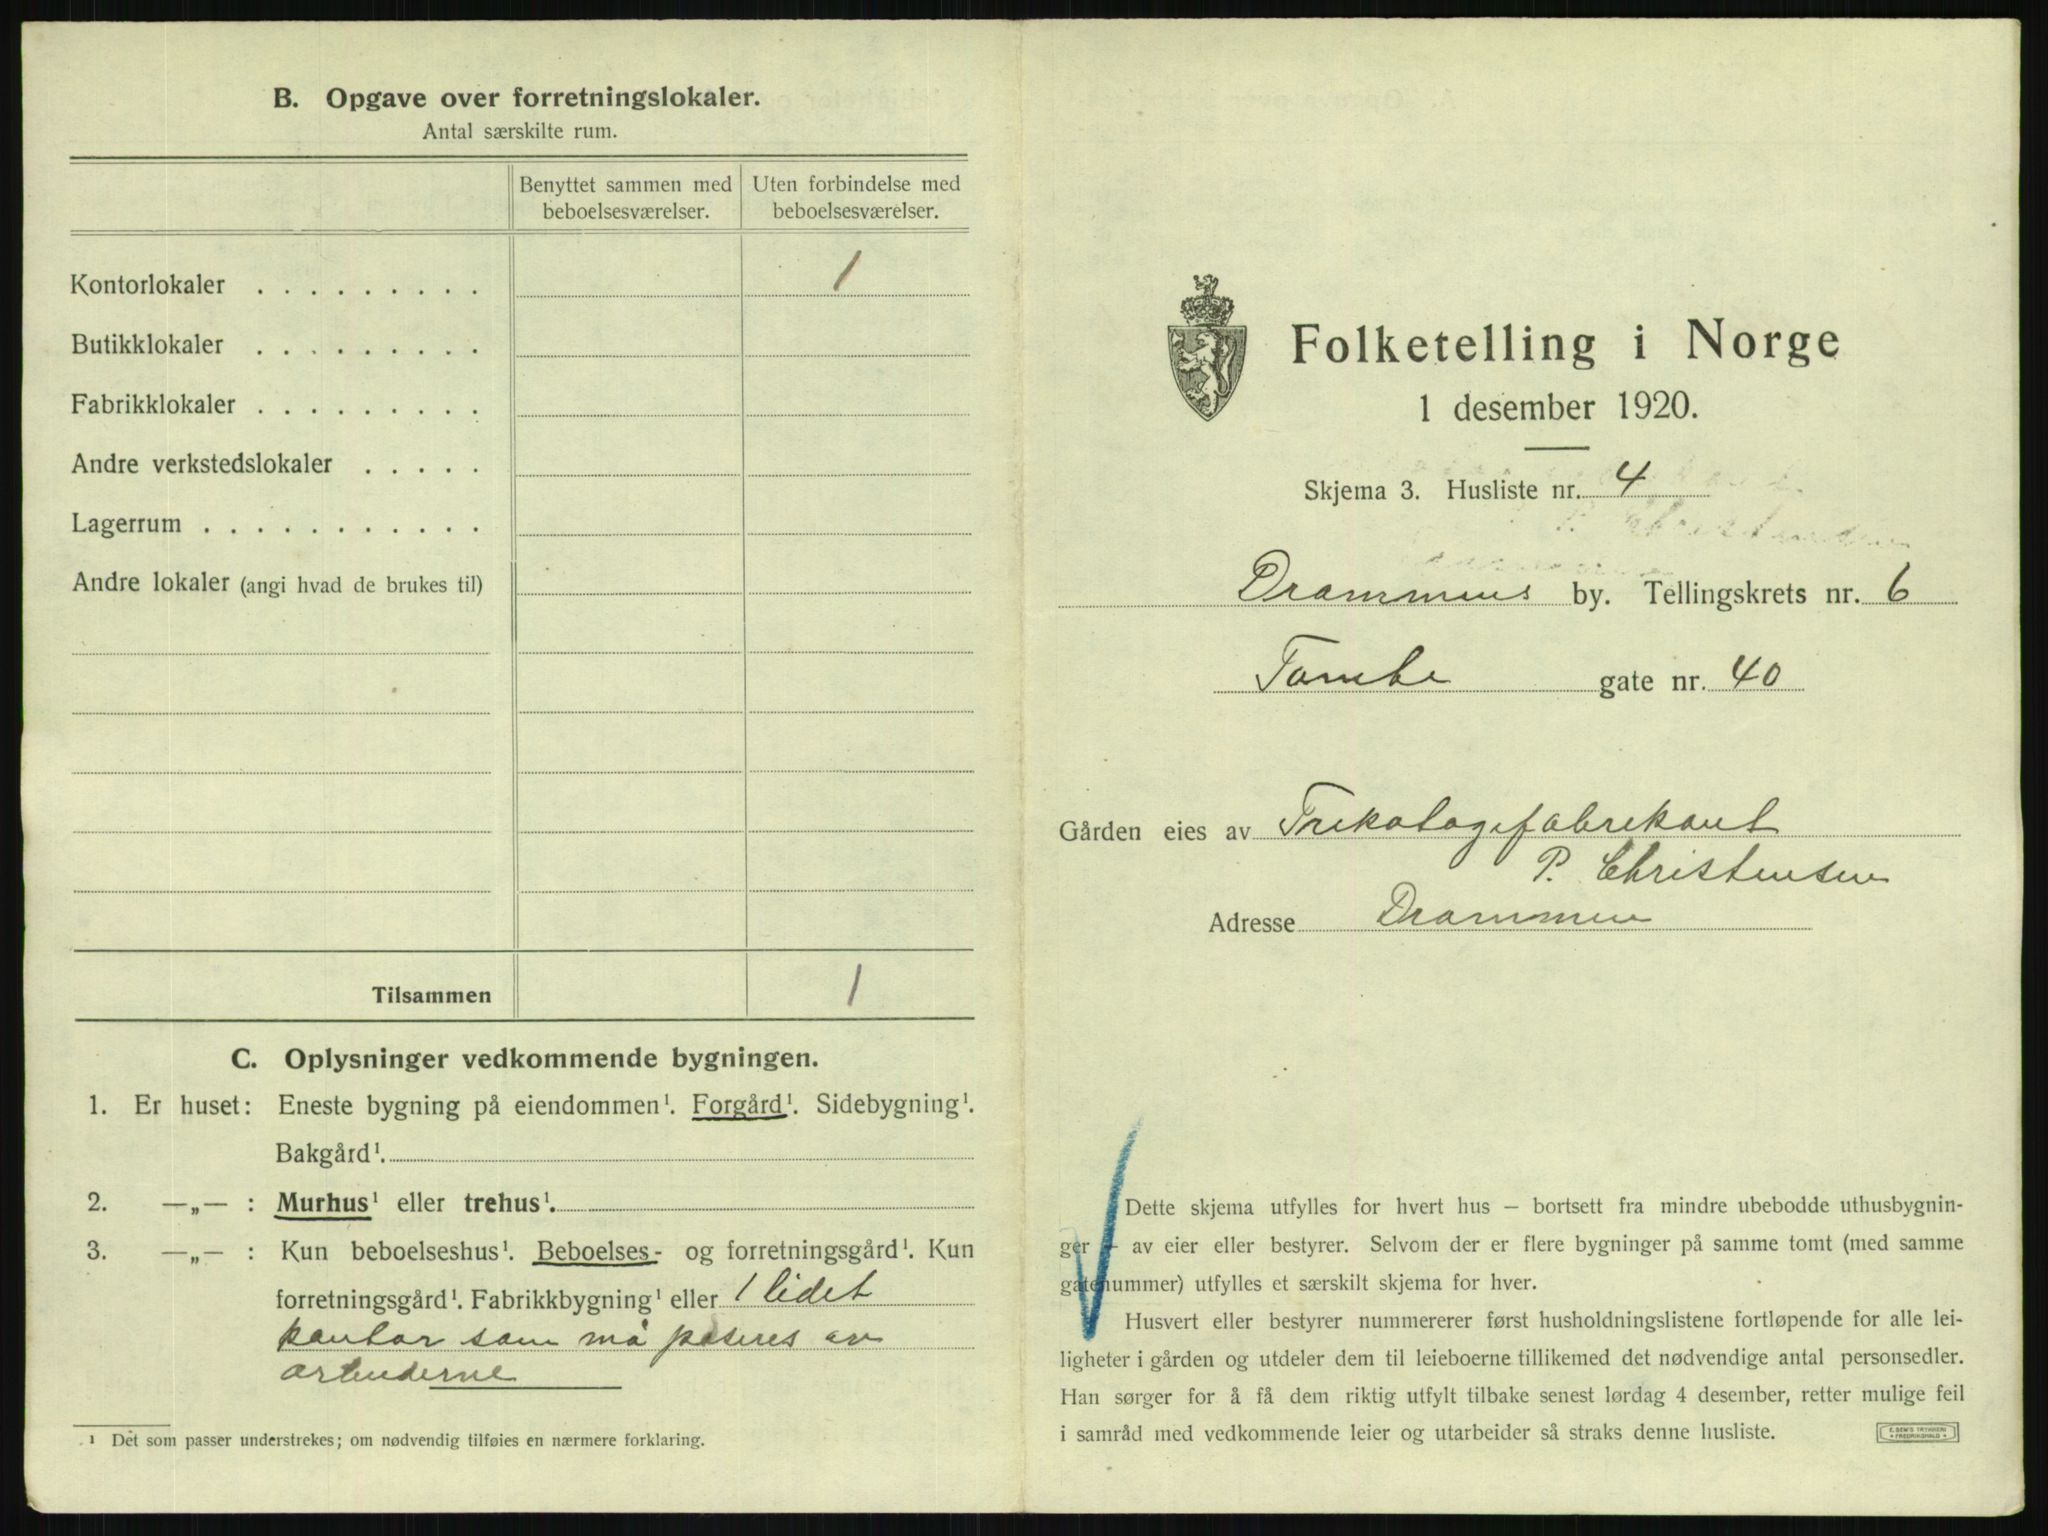 B. Opgave over forretningslokaler.
Antal særskilte rum.
Benyttet sammen med beboelsesværelser.
Uten forbindelse med beboelsesværelser.
Kontorlokaler . . . . . . . . . 1
Butikklokaler . . . . . . . . .
Fabrikklokaler . . . . . . . . .
Andre verkstedslokaler . . . . .
Lagerrum . . . . . . . . . . .
Andre lokaler (angi hvad de brukes til)
Tilsammen 1
C. Oplysninger vedkommende bygningen.
1. Er huset: Eneste bygning på eiendommen¹. Forgård¹. Sidebygning¹.
Bakgård¹.
2. —„— : Murhus¹ eller trehus¹.
3. —„— : Kun beboelseshus¹. Beboelses- og forretningsgård¹. Kun
forretningsgård¹. Fabrikkbygning¹ eller 1 lidet
kontor som må paseres av
¹ Det som passer understrekes; om nødvendig tilføies en nærmere forklaring.
Folketelling i Norge
1 desember 1920.
Skjema 3. Husliste nr. 4
Drammens by. Tellingskrets nr. 6
Tomte gate nr. 40
Gården eies av Trikotagefabrikant
P. Christensen
Adresse Drammen
Dette skjema utfylles for hvert hus – bortsett fra mindre ubebodde uthusbygnin-
ger – av eier eller bestyrer. Selvom der er flere bygninger på samme tomt (med samme
gatenummer) utfylles et særskilt skjema for hver.
Husvert eller bestyrer nummererer først husholdningslistene fortløpende for alle lei-
ligheter i gården og utdeler dem til leieboerne tillikemed det nødvendige antal personsedler.
Han sørger for å få dem riktig utfylt tilbake senest lørdag 4 desember, retter mulige feil
i samråd med vedkommende leier og utarbeider så straks denne husliste.
E. SEM'S TRYKKERI
FREDRIKSHALD